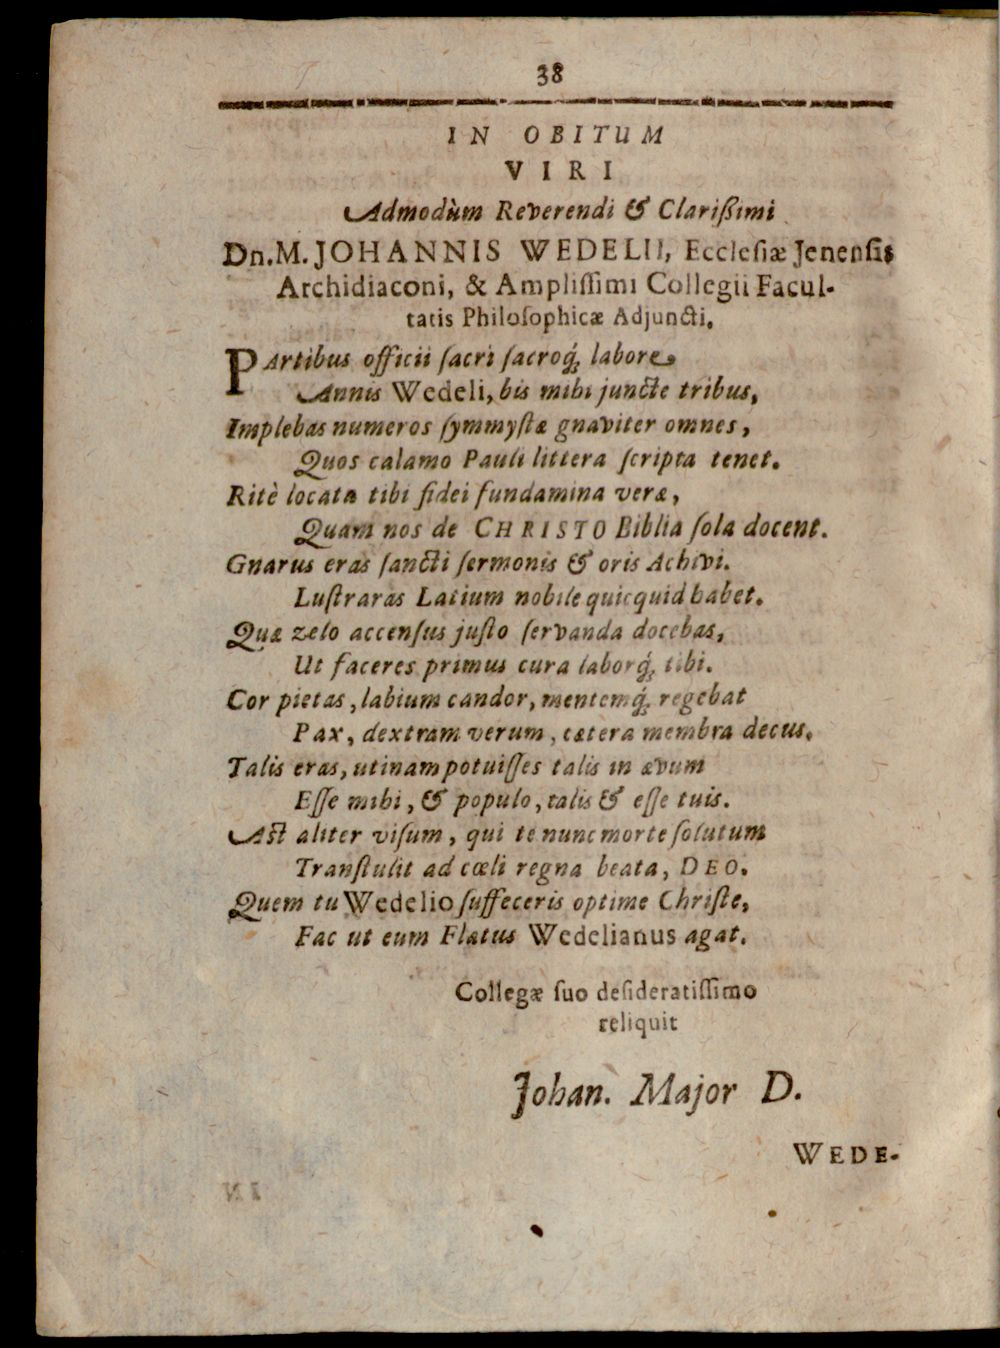 38
IN OBITUM
VIRI
Admodùm Reverendi & Clarißimi
Dn. M. JOHANNIS WEDELII, Ecclesiæ Jenensis
Archidiaconi, & Ampliſſimi Collegii Facul-
tatis Philoſophicæ Adjuncti.
PArtibus officii ſacri ſacroq́; labore
Annis Wedeli, bis mihi juncte tribus,
Implebas numeros ſymmyſtæ gnaviter omnes,
Quos calamo Pauli littera ſcripta tenet.
Ritè locata tibi fidei fundamina veræ,
Quam nos de CHRISTO Biblia ſola docent.
Gnarus eras ſancti ſermonis & oris Achivi.
Luſtraras Latium nobile quicquid habet.
Quæ zelo accenſus juſto ſervanda docebas,
Ut faceres primus cura laborq́; tibi.
Cor pietas, labium candor, mentemq́; regebat
Pax, dextram verum, cætera membra decus.
Talis eras, utinam potuiſſes talis in ævum
Eſſe mihi, & populo, talis & eſſe tuis.
Aſt aliter viſum, qui te nunc morte ſolutum
Tranſtulit ad cœli regna beata, DEO.
Quem tu Wedelio ſuffeceris optime Chriſte,
Fac ut eum Flatus Wedelianus agat.
Collegæ ſuo deſideratiſſimo
reliquit
Johan. Major D.
WEDE-